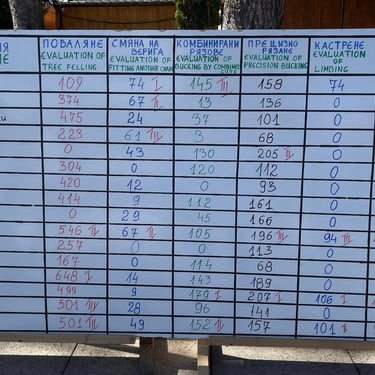 ПОВАЛЯНЕ СМЯНА НА КОМБИНИРАНИ ПРЕЦИЗНО КАСТРЕНЕ
EVALUATION OF ВЕРИГА РЯЗОВЕ РЯЗАНЕ EVALUATION OF
TREE FELLING EVALUATION OF EVALUATION OF EVALUATION OF LIMBING
FITTING ANOTHER CHAIN BUCKING BY COMBINED PRECISION BUCKING
CUTS
109 74 I 145 III 158 74
374 67 II 13 136 0
475 24 37 101 0
223 61 III 3 68 0
0 43 130 205 II 0
304 0 120 112 0
420 12 0 93 0
414 9 112 161 0
0 29 45 166 0
546 II 67 II 105 196 III 94 III
257 0 0 113 0
167 0 114 68 0
648 I 14 143 189 0
499 9 179 I 207 I 106 I
501 III 28 96 141 0
501 III 49 152 II 157 101 II